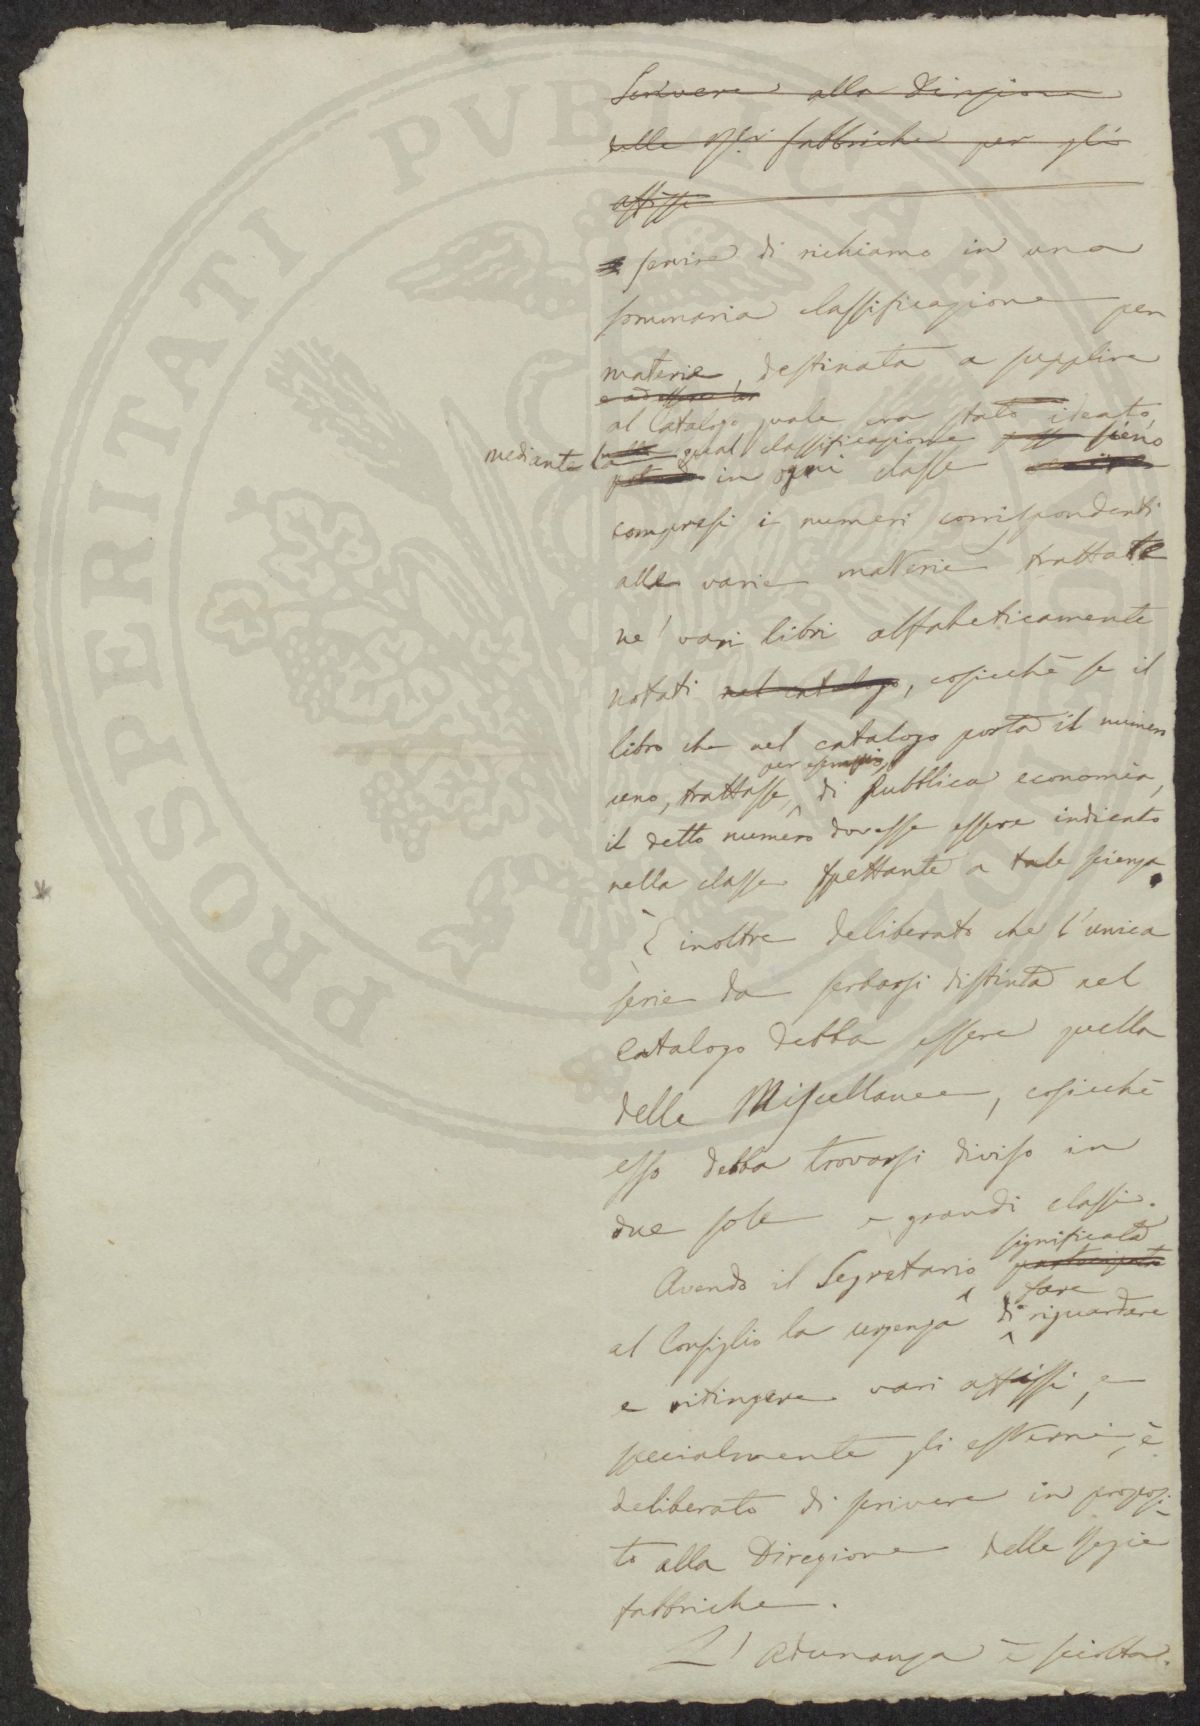 Scrivere alla Direzione
delle fabbriche per gli
affissi
servire di richiamo in una
sommaria classificazione per
materie, destinata a supplire
e ad essere
al Catalogo quale era stato ideato,
mediante la qual classificazione sieno
in ogni classe
compresi i numeri corrispondenti
alle varie materie trattate
ne' vari libri alfabeticamente
notati nel catalogo, cosicché se il
libro che nel catalogo porta il numero
per esempio,
uno, trattasse di Pubblica economia,
il detto numero dovesse essere indicato
nella classe spettante a tale scienza.
È inoltre deliberato che l'unica
serie da serbarsi distinta nel
Catalogo debba essere quella
delle Miscellanee, cosicché
esso debba trovarsi diviso in
due sole e grandi classi.
significata
Avendo il Segretario partecipato
fare
al Consiglio la urgenza di riguardare
e ritingere vari affissi, e
specialmente gli esterni, è
deliberato di scrivere in proposi-
to alla Direzione delle Regie
fabbriche.
L'Adunanza è sciolta.
PROSPERITATI PVBLICAE